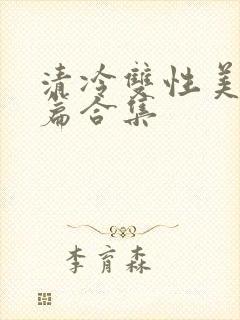 清冷雙性美
篇合集
李育森